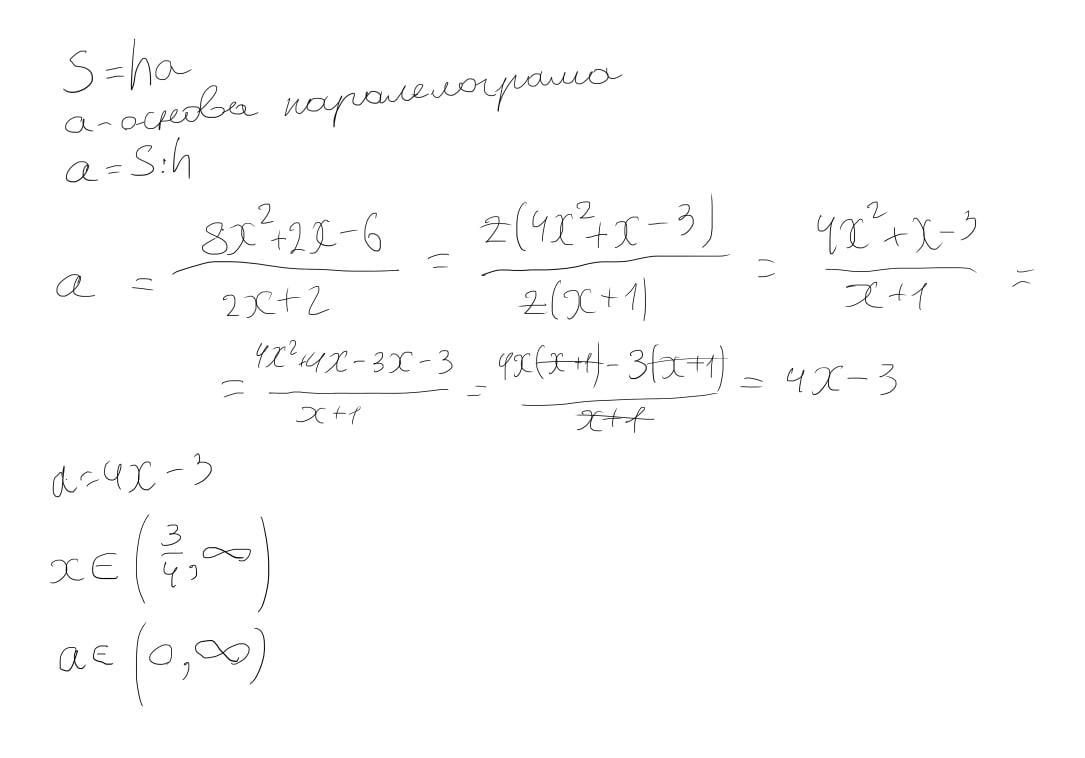 S = ha
a - основа паралелограма
a = S:h
a = \frac{8x^2+2x-6}{2x+2} = \frac{2(4x^2+x-3)}{2(x+1)} = \frac{4x^2+x-3}{x+1} =
= \frac{4x^2+4x-3x-3}{x+1} = \frac{4x(x+1)-3(x+1)}{x+1} = 4x-3
a = 4x-3
x ∈ (\frac{3}{4}, ∞)
a ∈ (0, ∞)